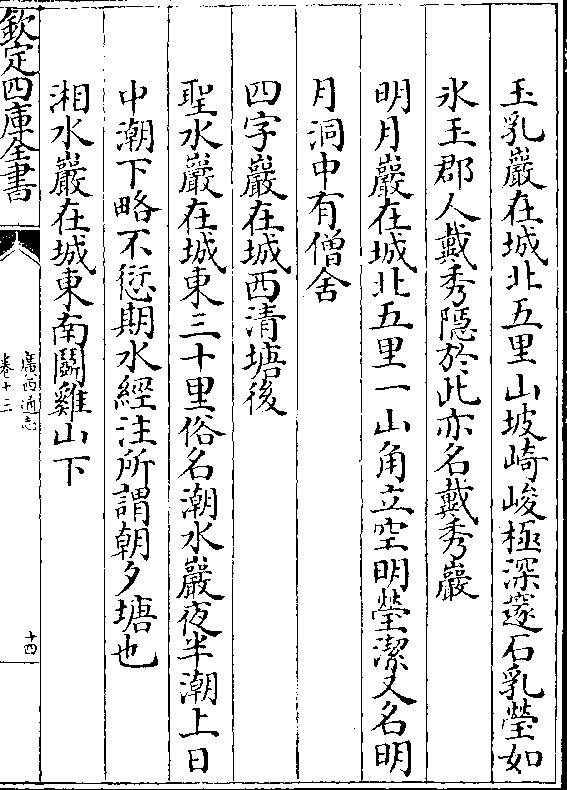 玉乳巖在城北五里山坡崎峻極深邃石乳瑩如
氷玉郡人戴秀隱於此亦名戴秀巖
明月巖在城北五里一山角立空明瑩潔又名明
月洞中有僧舍
四字巖在城西清塘後
聖水巖在城東三十里俗名潮水巖夜半潮上日
中潮下略不愆期水經注所謂朝夕塘也
湘水巖在城東南鬬雞山下
欽定四庫全書
廣西通志
卷十三
十四